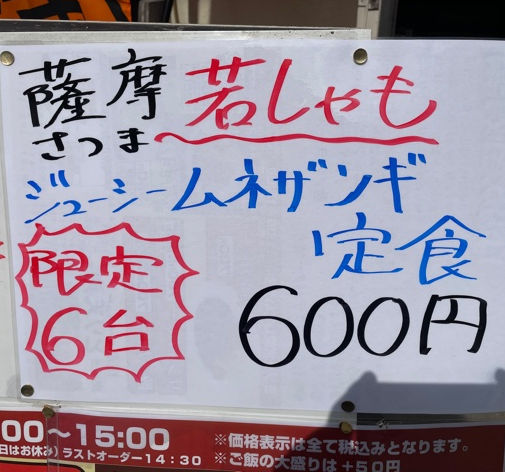 薩摩 若しゃも
さつま
ジューシームネザンギ
定食
限定
6台
600円
00～15:00
日はお休み） ラストオーダー14：30
※価格表示は全て税込みとなります。
※ご飯の大盛りは＋50円